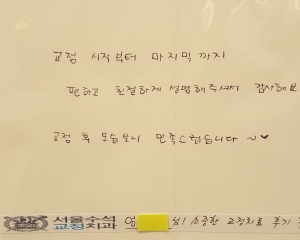 교정 시작부터 마지막 까지
편하고 친절하게 설명해주셔서 감사해요
교정 후 모습보니 만족스럽습니다 ~♥
서울수석
교정치과
엄 님! 소중한 교정치료 후기